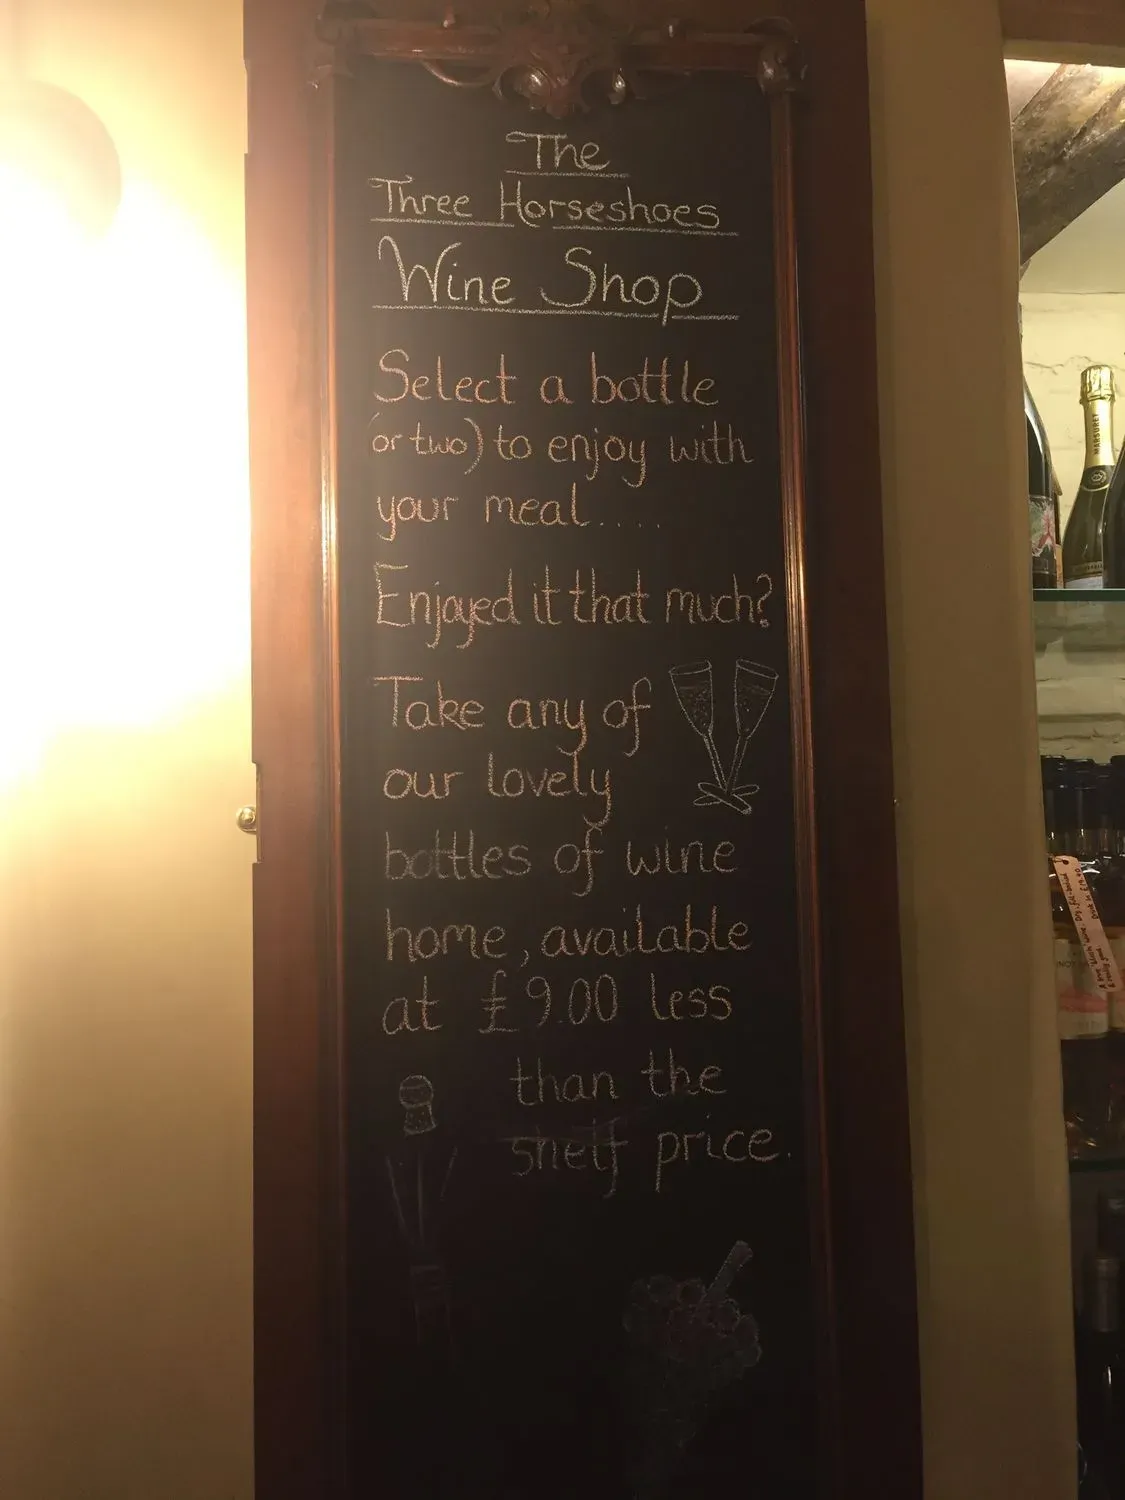 The
Three Horseshoes
Wine Shop
Select a bottle
(or two) to enjoy with
your meal.....
Enjoyed it that much?
Take any of
our lovely
bottles of wine
home, available
at £9.00 less
than the
shelf price.
MARSURET